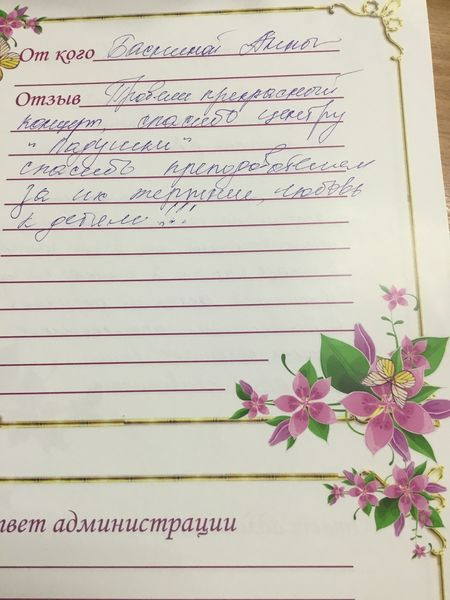 От кого Баскиной Анны
Отзыв Провели прекрасный
концерт, спасибо центру
"Ладушки"
спасибо преподователем
за их терпение, любовь
к детям!!!
твет администрации